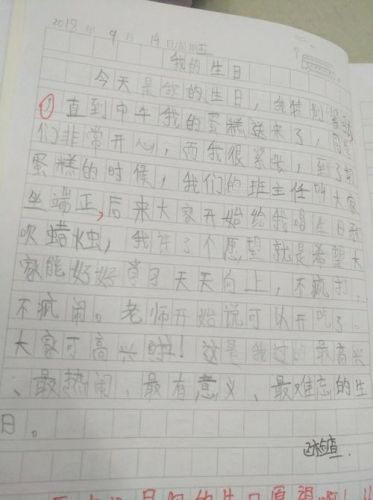 2018年9月14日 星期五
我的生日
今天是我的生日，我特别
直到中午我的蛋糕送来了，同学
们非常开心，而我很紧张，到了切
蛋糕的时候，我们的班主任叫大家
坐端正，后来大家开始给我唱生日歌
吹蜡烛，我许了个愿望就是希望大
家能好好学习天天向上，不疯打，
不疯闹。老师开始说可以开吃了。
大家可高兴啦！这是我过的最高兴
、最热闹、最有意义、最难忘的生
日。